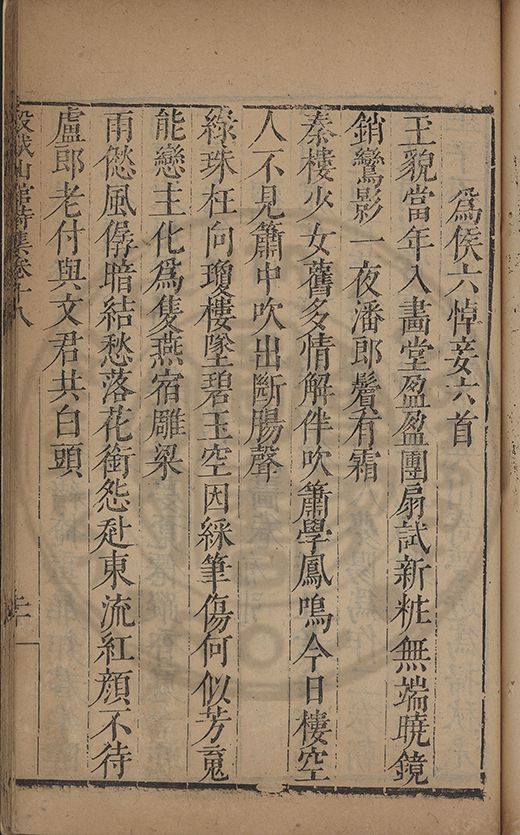 為侯六悼妾六首
玉貌當年入畫堂盈盈團扇試新粧無端曉鏡
銷鸞影一夜潘郎鬢有霜
秦樓少女舊多情解伴吹簫學鳳鳴今日樓空
人不見簫中吹出斷腸聲
綠珠枉向瓊樓墜碧玉空因綵筆傷何似芳䰟
能戀主化為隻燕宿雕梁
雨僽風僝暗結愁落花銜怨赴東流紅顏不待
盧郎老付與文君共白頭
穀城山館詩集卷十八